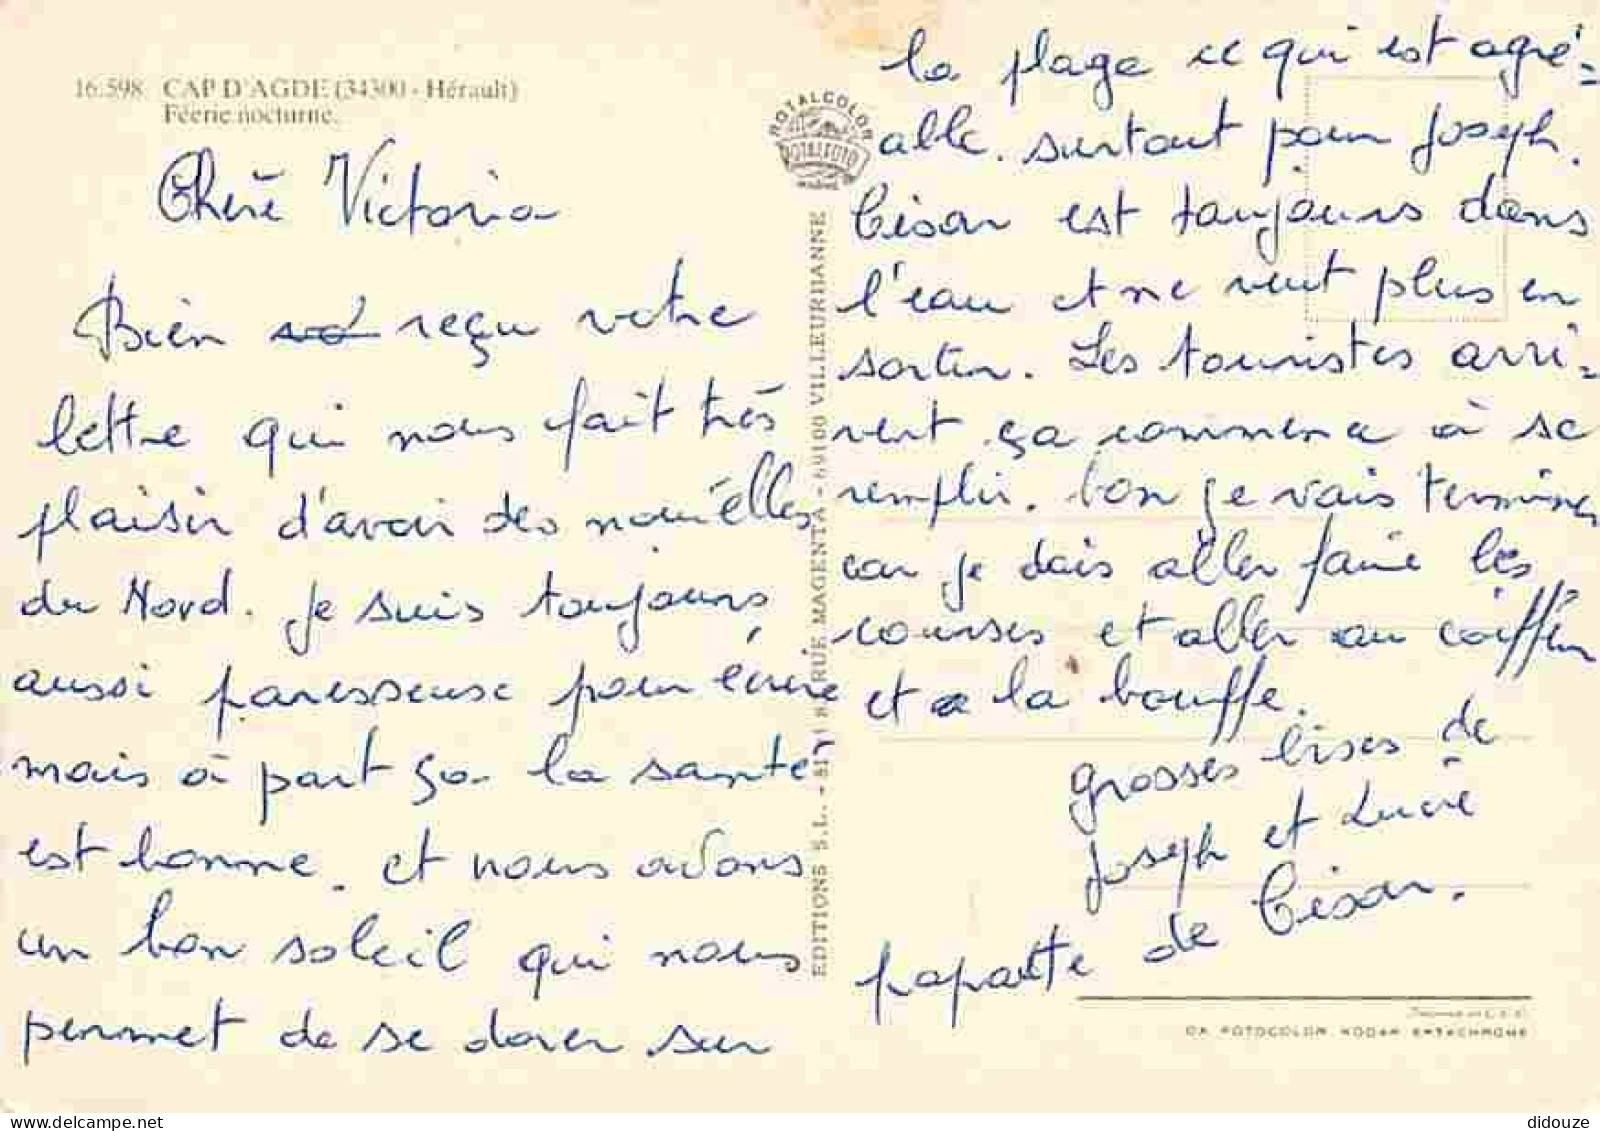 16.598 CAP D'AGDE (34300 - Hérault)
Féerie nocturne.
Chère Victoria
Bien reçu votre
lettre qui nous fait très
plaisir d'avoir des nouvelles
du Nord. je suis toujours
aussi paresseuse pour écrire
mais à part ça la santé
est bonne. et nous avons
un bon soleil qui nous
permet de se dorer sur
ROTALCOLOR
ROTALFOTO
EDITIONS S.L. - RUE MAGENTA - 69100 VILLEURBANNE
la plage ce qui est agré=
able. surtout pour Joseph.
César est toujours dans
l'eau et ne veut plus en
sortir. Les touristes arri=
vent ça commence à se
remplir. bon je vais terminer
car je dois aller faire les
courses et aller au coiffeur
et a la bouffe.
grosses bises de
Joseph et Lucie
papatte de César.
KODAK EKTACHROME
didouze